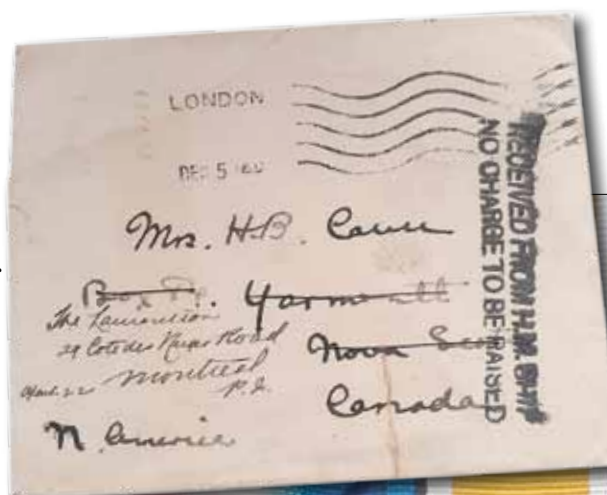 LONDON
DEC 5
RECEIVED FROM H.M. SHIP
NO CHARGE TO BE RAISED
Mrs. H.B.
Box Yarmouth
The
29 Cote des Road
Nova
Montreal
P.Q.
Canada
N. America